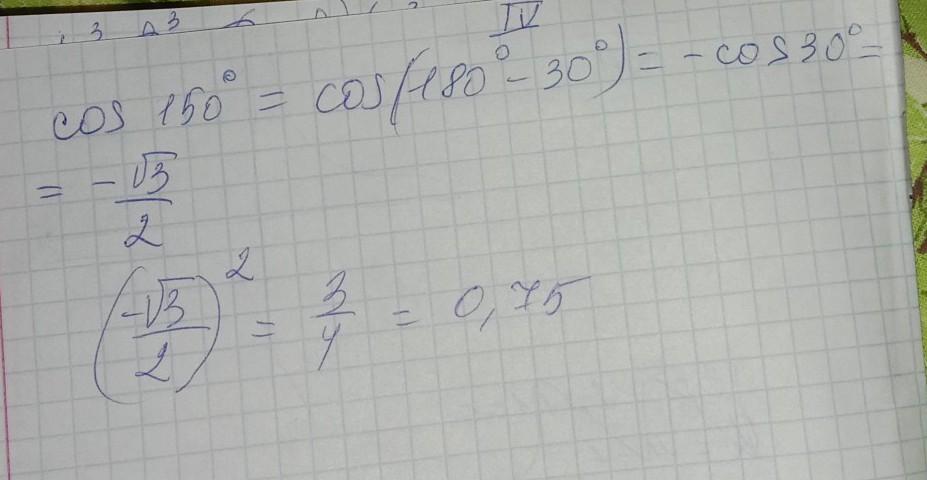 IV
cos 150° = cos(180° - 30°) = - cos 30° =
= -√3/2
(-√3/2)² = 3/4 = 0,75